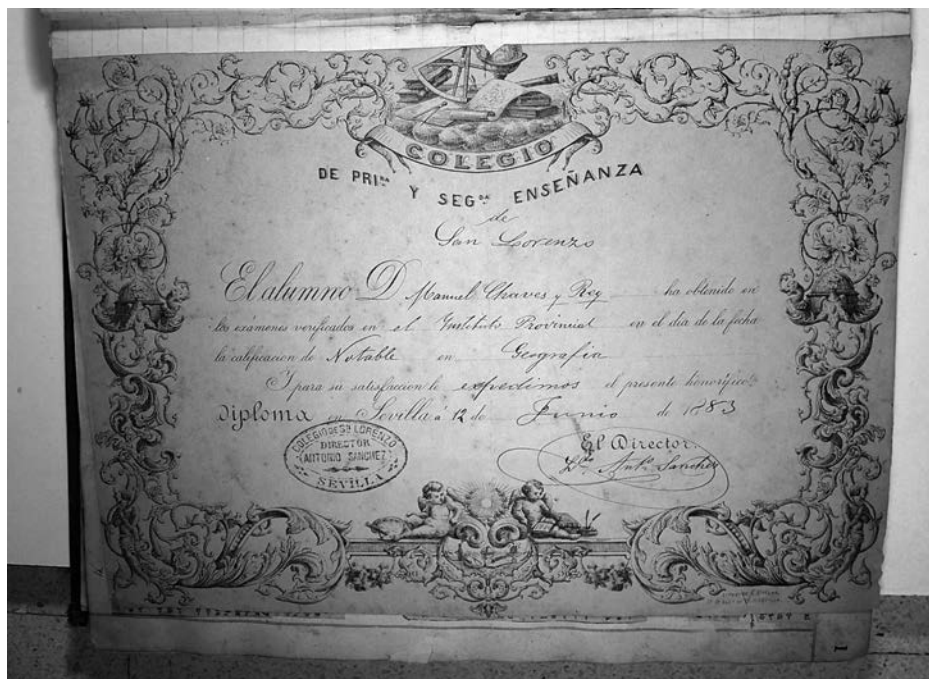 COLEGIO
DE PRI.RA Y SEG.DA ENSEÑANZA
de
San Lorenzo
El alumno D Manuel Chaves y Rey ha obtenido en
los exámenes verificados en el Instituto Provincial en el dia de la fecha
la calificacion de Notable en Geografia
Y para su satisfaccion le expedimos el presente honorifico
Diploma en Sevilla á 12 de Junio de 1883
El Director,
D.n Ant.o Sanchez
COLEGIO DE S.N LORENZO
DIRECTOR
ANTONIO SANCHEZ
SEVILLA